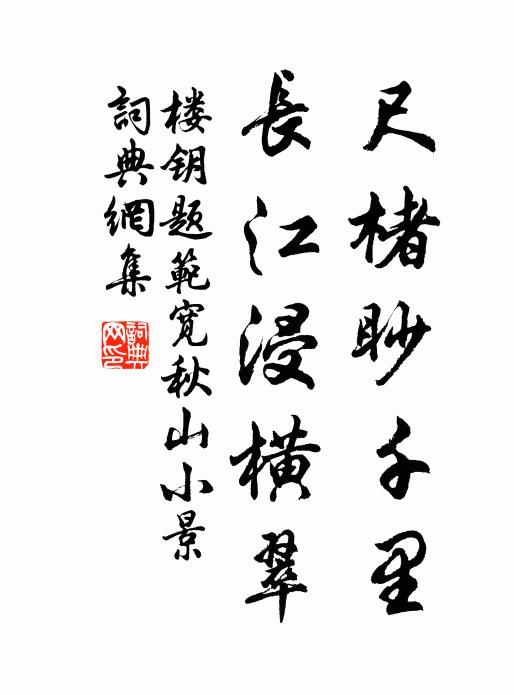 尺楮眇千里
長江浸橫翠
楼钥题範寬秋山小景
詞典網集
詞典网印